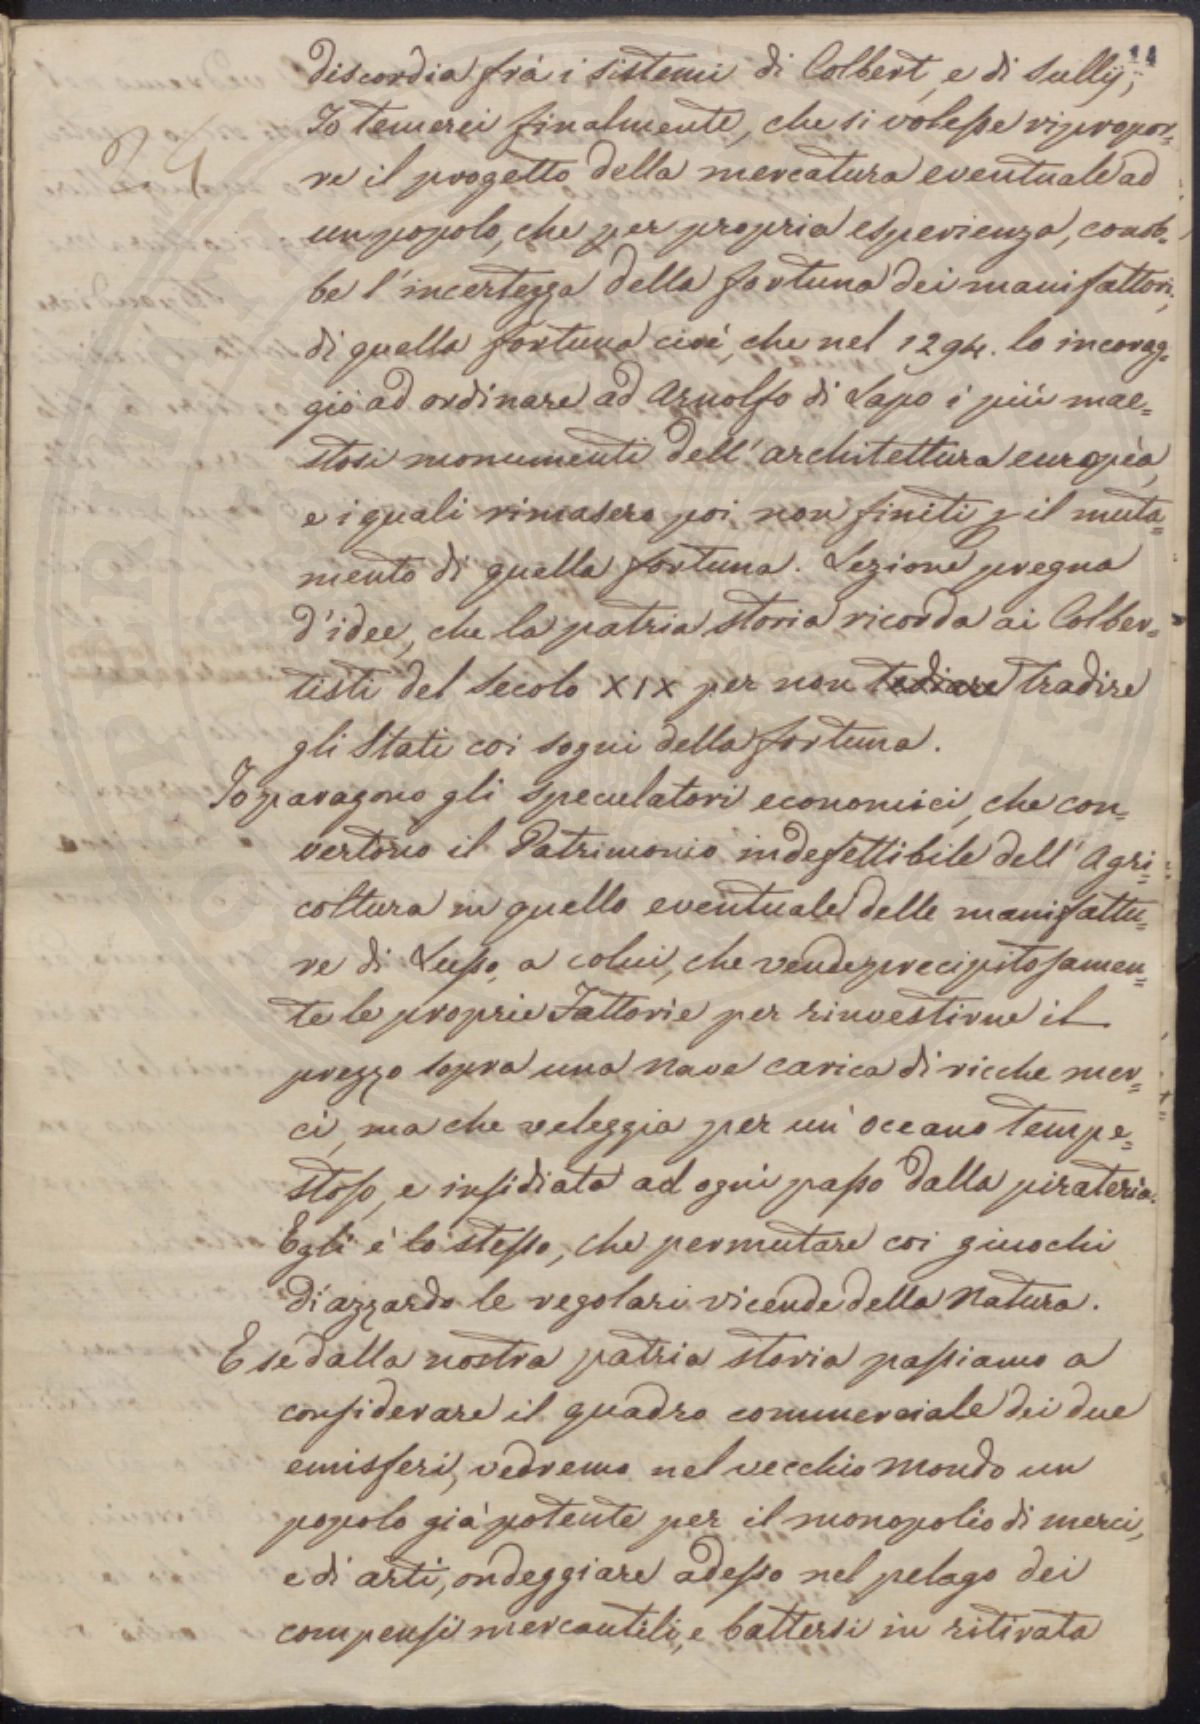 14
discordia frà i sistemi di Colbert, e di Sullÿ;
Io temerei finalmente, che si volesse ripropor=
re il progetto della mercatura eventuale ad
un popolo, che per propria esperienza, conob=
be l'incertezza della fortuna dei manifattori,
di quella fortuna cioè, che nel 1294. lo incorag=
giò ad ordinare ad Arnolfo di Lapo i più mae=
stosi monumenti dell'architettura europèa,
e i quali rimasero poi non finiti p il muta=
mento di quella fortuna. Lezione pregna
d'idee, che la patria storia ricorda ai Colber=
tisti del Secolo XIX per non tediare tradire
gli Stati coi sogni della fortuna.
Io paragono gli speculatori economici, che con=
vertono il Patrimonio indefettibile dell'Agri=
coltura in quello eventuale delle manifattu=
re di Lusso, a colui, che vende precipitosamen=
te le proprie Fattorie per rinvestirne il
prezzo sopra una nave carica di ricche mer=
ci, ma che veleggia per un'oceano tempe=
stoso, e insidiata ad ogni passo dalla pirateria.
Egli è lo stesso, che permutare coi giuochi
di azzardo le regolari vicende della Natura.
E se dalla nostra patria storia passiamo a
considerare il quadro commerciale dei due
emisferi, vedremo nel vecchio Mondo un
popolo già potente per il monopolio di merci,
e di arti, ondeggiare adesso nel pelago dei
compensi mercantili, e battersi in ritirata